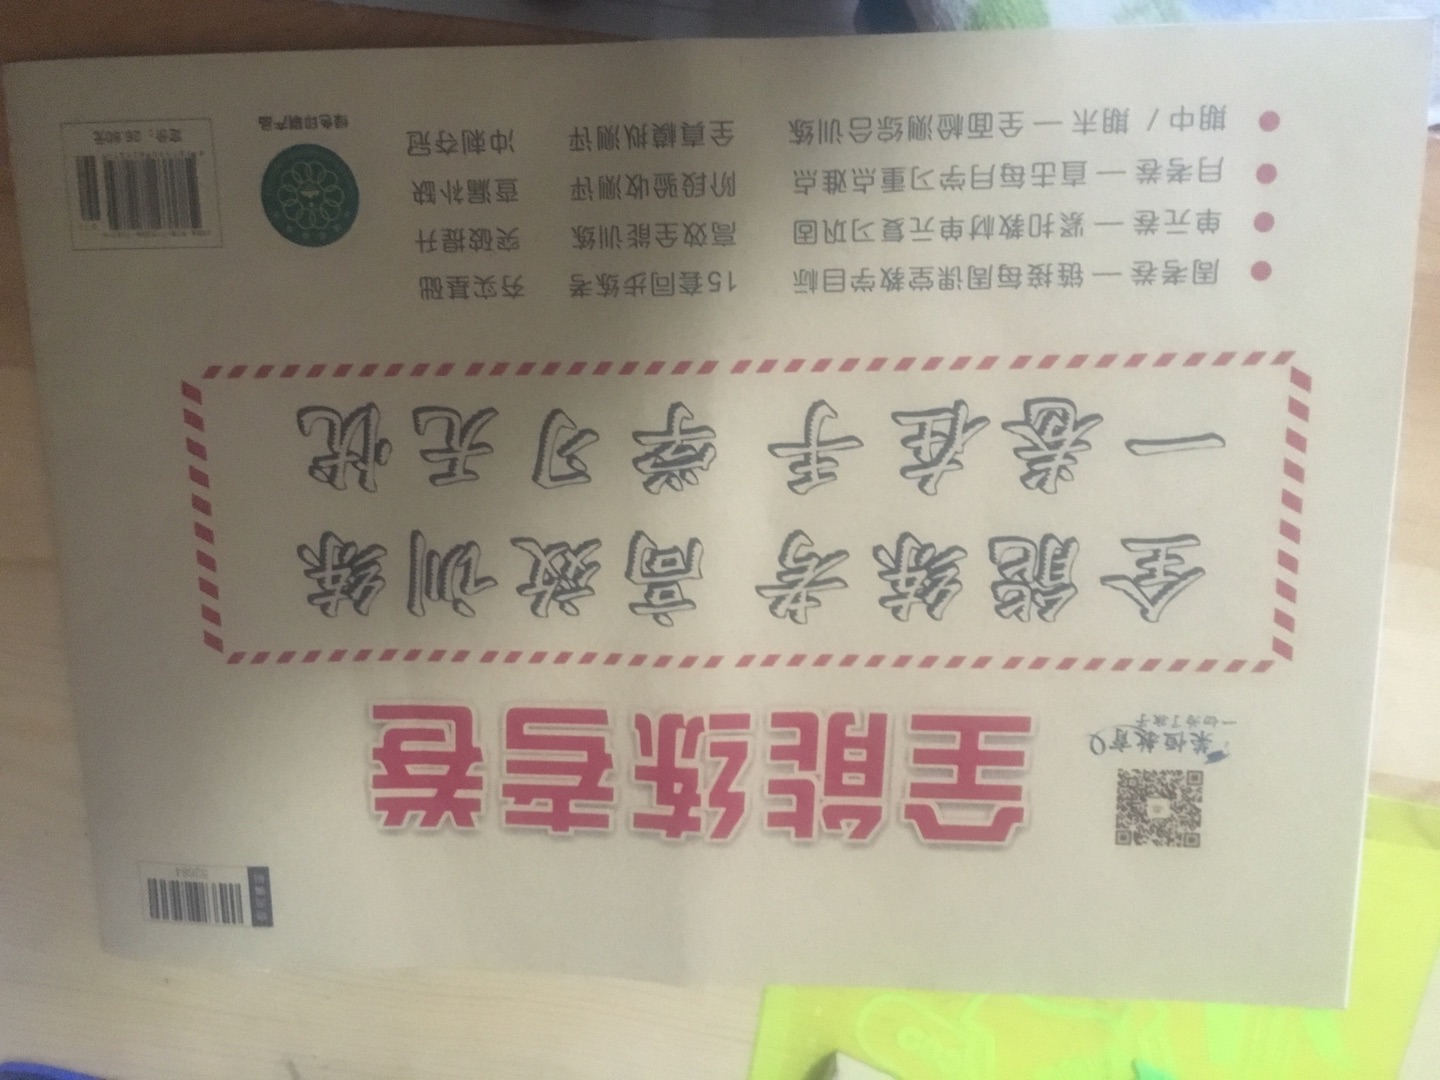 荣恒教育
全能练考卷
全能练考 高效训练
一卷在手 学习无忧
周考卷 — 链接每周课堂教学目标 15套同步练考 夯实基础
单元卷 — 紧扣教材单元复习巩固 高效全能训练 突破提升
月考卷 — 直击每月学习重点难点 阶段验收测评 查漏补缺
期中 / 期末 — 全面检测综合训练 全真模拟测评 冲刺夺冠
绿色印刷产品
定价：26.80元